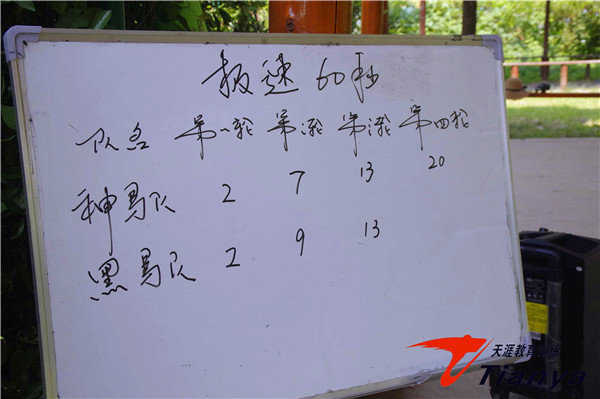 极速60秒
队名 第一轮 第二轮 第三轮 第四轮
神马队 2 7 13 20
黑马队 2 9 13
天涯教育
Tianya